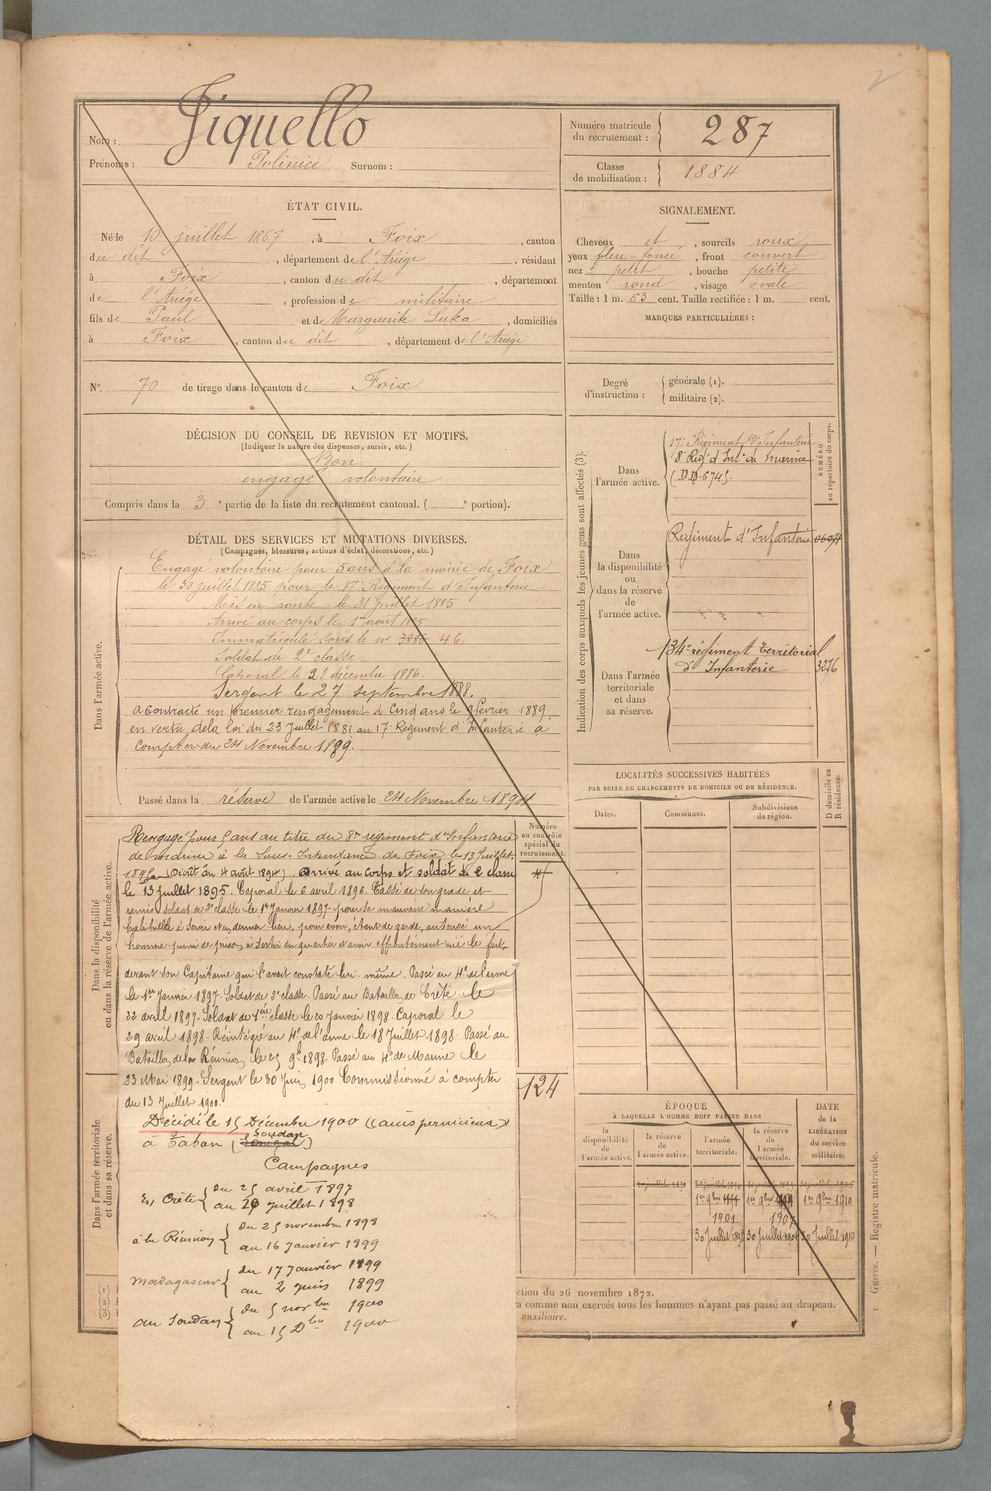 Nom : Jiquello
Prénoms : Polinice Surnom :
Numéro matricule du recrutement : 287
Classe de mobilisation : 1884
ÉTAT CIVIL.
Né le 10 juillet 1867, à Foix, canton
du dit, département de l'Ariège, résidant
à Foix, canton du dit, département
de l'Ariége, profession de militaire
fils de Paul et de Marguerite Luka, domiciliés
à Foix, canton du dit, département de l'Ariége
N° 70 de tirage dans le canton de Foix
DÉCISION DU CONSEIL DE REVISION ET MOTIFS.
(Indiquer la nature des dispenses, sursis, etc.)
Bon
engagé volontaire
Compris dans la 3e partie de la liste du recrutement cantonal. ( e portion).
SIGNALEMENT.
Cheveux et, sourcils roux
yeux bleu foncé, front couvert
nez petit, bouche petite
menton rond, visage ovale
Taille : 1 m. 63 cent. Taille rectifiée : 1 m. cent.
MARQUES PARTICULIÈRES :
Degré d'instruction : générale (1).
militaire (2).
DÉTAIL DES SERVICES ET MUTATIONS DIVERSES.
(Campagnes, blessures, actions d'éclat, décorations, etc.)
Dans l'armée active.
Engagé volontaire pour 5 ans à la mairie de Foix
le 30 juillet 1885 pour le 17e Régiment d'Infanterie
Mis en route le 31 juillet 1885
Arrivé au corps le 1er août 1885
Immatriculé sous le no 3885 46.
Soldat de 2e classe
Caporal le 21 décembre 1886
Sergent le 27 septembre 1888.
A contracté un premier rengagement de cinq ans le 9 février 1889
en vertu de la loi du 23 Juillet 1881 au 17e Régiment d'Infanterie à
compter du 24 Novembre 1889.
Passé dans la réserve de l'armée active le 24 Novembre 1894
Indication des corps auxquels les jeunes gens sont affectés (3).
NUMÉRO au répertoire du corps.
Dans l'armée active.
17e Régiment d'Infanterie
8e Rég. d'Inf.ie de marine
Dans la disponibilité ou dans la réserve de l'armée active.
Régiment d'Infanterie
Dans l'armée territoriale et dans sa réserve.
134e régiment territorial
d'Infanterie 3276
LOCALITÉS SUCCESSIVES HABITÉES
PAR SUITE DE CHANGEMENTS DE DOMICILE OU DE RÉSIDENCE.
Dates. Communes. Subdivisions de région. D domicile ou R résidence.
Numéro au contrôle spécial du recrutement.
Dans la disponibilité ou dans la réserve de l'armée active.
Rengagé pour 5 ans au titre du 8e régiment d'Infanterie
de marine à la Sous-Intendance de Foix le 13 Juillet
1895 (Droit au 4 août 1894). Arrivé au corps et soldat de 2e classe
le 13 juillet 1895. Caporal le 6 avril 1896. Cassé de son grade et
remis soldat de 2e classe le 1er Janvier 1897 pour sa mauvaise manière
habituelle de servir et en dernier lieu, pour avoir, étant de garde, autorisé un
homme puni de prison à sortir du quartier et avoir effrontément nié le fait
devant son Capitaine qui l'avait constaté lui-même. Passé au 4e de l'arme
le 1er Janvier 1897. Soldat de 2e classe. Passé au Bataillon de Crète le
22 avril 1897. Soldat de 1ère classe le 20 Janvier 1898. Caporal le
29 avril 1898. Réintégré au 4e de l'arme le 18 Juillet 1898. Passé au
Bataillon de la Réunion le 25 9bre 1898. Passé au 4e de Marine le
23 Mai 1899. Sergent le 30 Juin 1900 Commissionné à compter
du 13 Juillet 1900.
124
Dans l'armée territoriale et dans sa réserve.
Décédé le 15 Décembre 1900 (accès pernicieux)
à Kaban (Soudan)
Campagnes
En Crète du 25 avril 1897
au 20 juillet 1898
à la Réunion du 25 novembre 1898
au 16 Janvier 1899
Madagascar du 17 Janvier 1899
au 2 juin 1899
au Soudan du 5 novbre 1900
au 15 Dbre 1900
ÉPOQUE
À LAQUELLE L'HOMME DOIT PASSER DANS
la disponibilité de l'armée active. la réserve de l'armée active. l'armée territoriale. la réserve de l'armée territoriale.
DATE de la LIBÉRATION du service militaire.
1er 9bre 1901 1er 9bre 1907 1er 9bre 1910
30 Juillet 30 Juillet 30 Juillet 1910
ction du 26 novembre 1872.
comme non exercés tous les hommes n'ayant pas passé au drapeau.
auxiliaire.
(1)
(2)
(3)
Guerre. — Registre matricule.